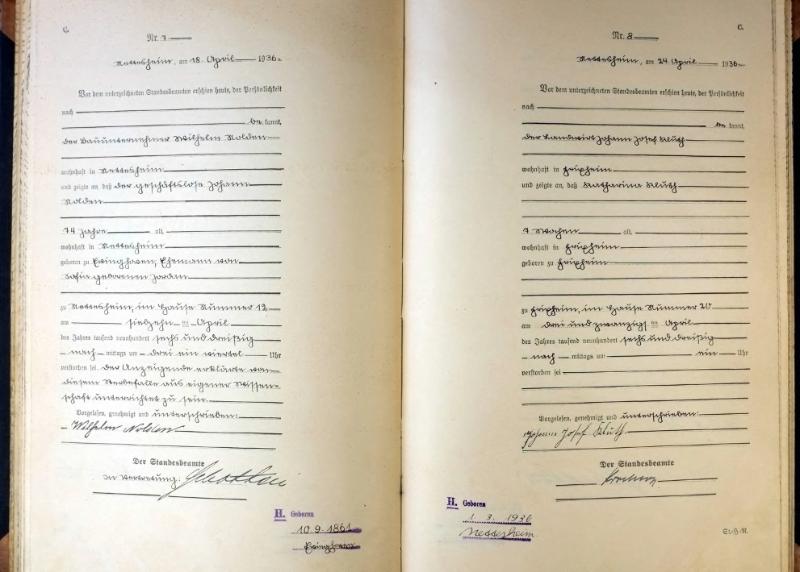 C.
Nr. 7
Nettesheim, am 18. April 1936.
Vor dem unterzeichneten Standesbeamten erschien heute, der Persönlichkeit
nach
be kannt,
der Bauunternehmer Wilhelm Nolden
wohnhaft in Nettesheim
und zeigte an, daß der geschäftslose Johann
Nolden
74 Jahre alt,
wohnhaft in Nettesheim
geboren zu Evinghoven, Ehemann von
geborenen
zu Nettesheim, im Hause Nummer 12
am siebzehn ten April
des Jahres tausend neunhundert sechs und dreißig
nach mittags um drei ein viertel Uhr
verstorben sei. Der Anzeigende erklärte von
diesem Sterbefalle aus eigener Wissen-
schaft unterrichtet zu sein.
Vorgelesen, genehmigt und unterschrieben:
Wilhelm Nolden
Der Standesbeamte
In Vertretung:
H. Geboren
10.9.1861
C.
Nr. 8
Nettesheim, am 24. April 1936.
Vor dem unterzeichneten Standesbeamten erschien heute, der Persönlichkeit
nach
be kannt,
der Landwirt Johann Josef Kluth
wohnhaft in Frixheim
und zeigte an, daß Katharina Kluth
7 Wochen alt,
wohnhaft in Frixheim
geboren zu Frixheim
zu Frixheim, im Hause Nummer 20
am drei und zwanzigs ten April
des Jahres tausend neunhundert sechs und dreißig
nach mittags um ein Uhr
verstorben sei
Vorgelesen, genehmigt und unterschrieben:
Johann Josef Kluth
Der Standesbeamte
H. Geboren
1.3.1936
Nettesheim